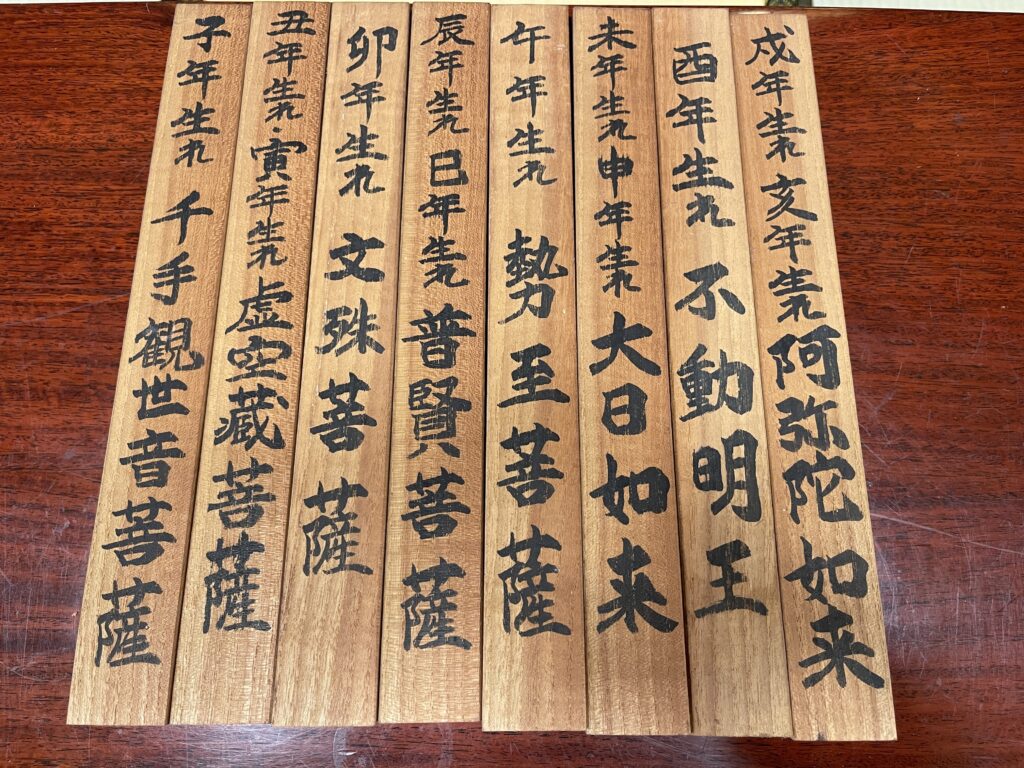 子年生れ 千手観世音菩薩
丑年生れ・寅年生れ 虚空蔵菩薩
卯年生れ 文殊菩薩
辰年生れ 巳年生れ 普賢菩薩
午年生れ 勢至菩薩
未年生れ 申年生れ 大日如来
酉年生れ 不動明王
戌年生れ 亥年生れ 阿弥陀如来